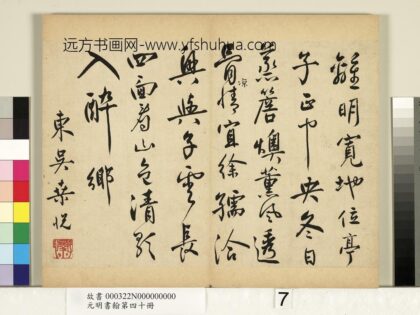 远方书画网-www.yfshuhua.com
離明寬地位亭
子正中央冬日
蒸簷燠薰風透
骨凉情宜徐孺洽
興與子雲長
四面看山色清歌
入醉鄉
東吳桑悅
故書 000322N000000000
元明書翰第四十冊
7